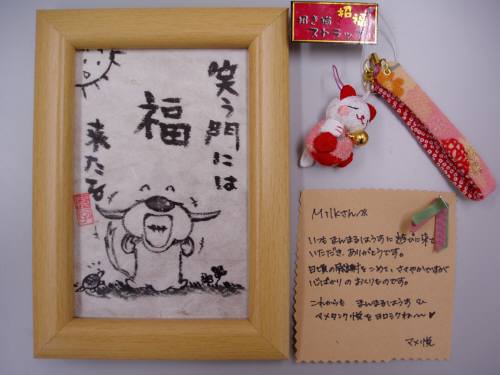 笑う門には
福
来たる
招福
招き猫
ストラップ
Milkさんへ
いつも まんまるはうすに遊びに来て
いただき、ありがとうです。
日頃の感謝をこめて、ささやかですが
心ばかりのおくりものです。
これからも まんまるはうす
よろしくね〜〜♥